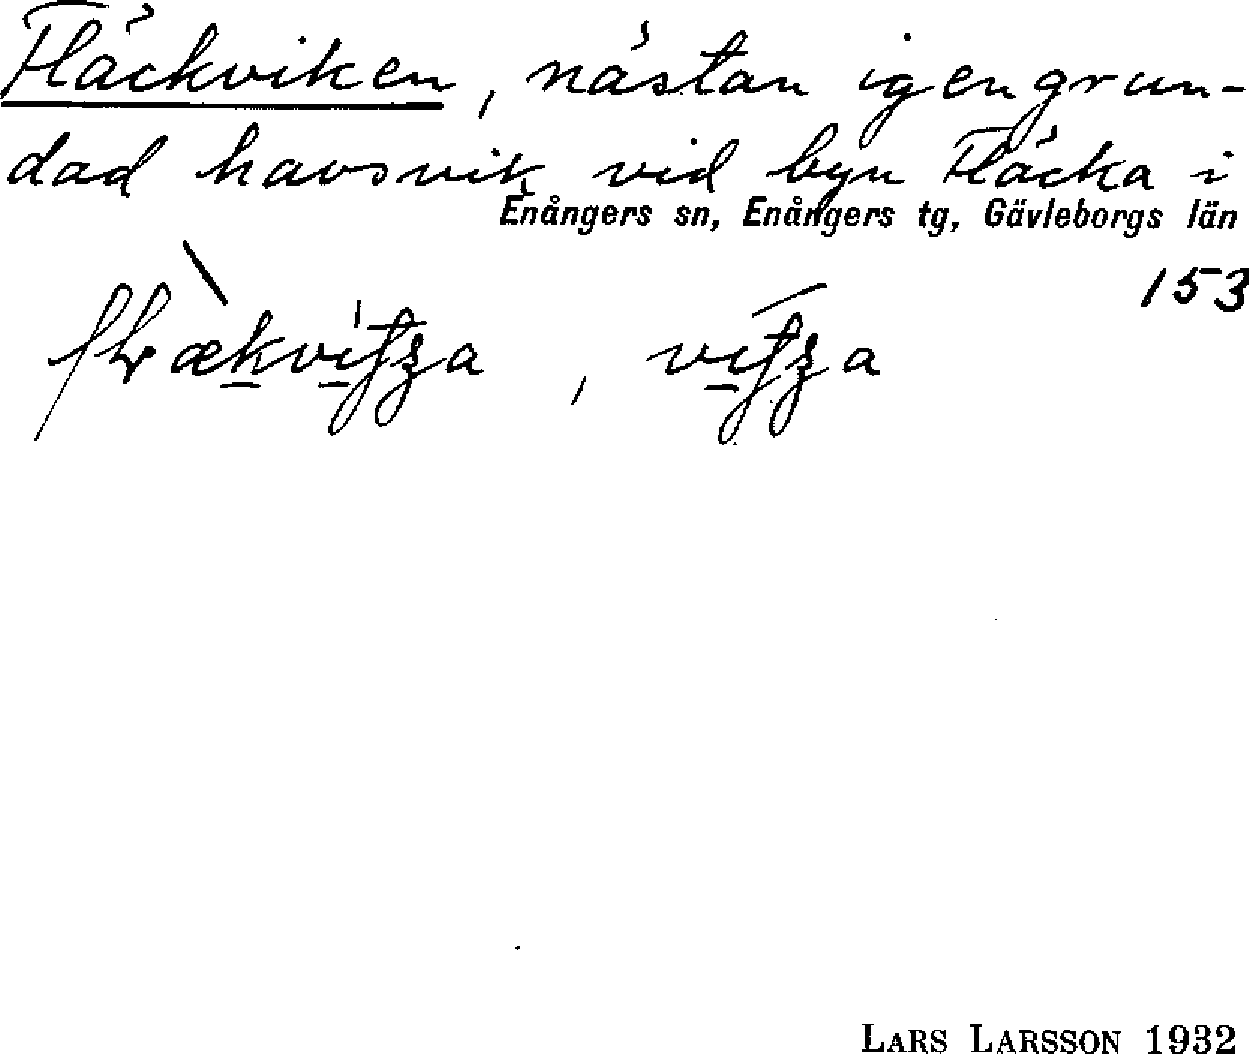 Fläckviken, nästan igengrun-
dad havsvik vid byn Fläcka i
Enångers sn, Enångers tg, Gävleborgs län
153
LARS LARSSON 1932